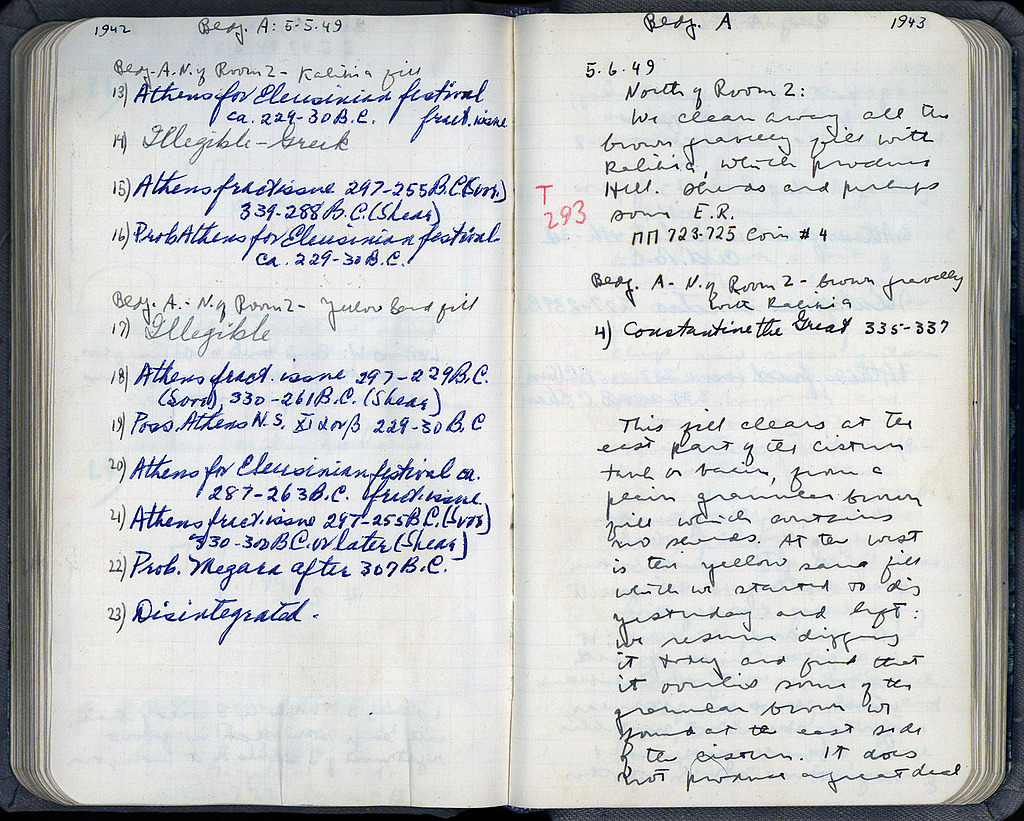 1942
Bldg. A: 5-5.49
Bldg-A.N. of Room 2 - Kalikia fill
13) Athens for Eleusinian festival
ca. 229-30 B.C. fract. issue
14) Illegible-Greek
15) Athens fract issue 297-255 B.C. (Svor.)
339-288 B.C. (Shear)
16) Prob Athens for Eleusinian festival
ca. 229-30 B.C.
Bldg. A. - N. of Room 2 - Yellow sand fill
17) Illegible
18) Athens fract. issue 297-229 B.C.
(Svor), 330-261 B.C. (Shear)
19) Poss. Athens N.S. XI α or β 229-30 B.C
20) Athens for Eleusinian festival ca.
287-263 B.C. fract. issue
21) Athens fract. issue 297-255 B.C. (Svor)
330-300 B.C. or later (Shear)
22) Prob. Megara after 307 B.C.
23) Disintegrated.
Bldg. A
1943
5.6.49
North of Room 2:
We clean away all the
brown gravelly fill with
Kalikia, which produces
Hell. sherds and perhaps
some E.R.
T
293
ΠΠ 723-725 Coin #4
Bldg. A - N. of Room 2 - brown gravelly
with Kalikia
4) Constantine the Great 335-337
This fill clears at the
east part of the cistern
tank or basin, from a
plain granular brown
fill which contains
no sherds. At the west
is the yellow sand fill
which we started to dig
yesterday and left:
we resume digging
it today and find that
it overlies some of the
granular brown we
found at the east side
of the cistern. It does
not produce a great deal